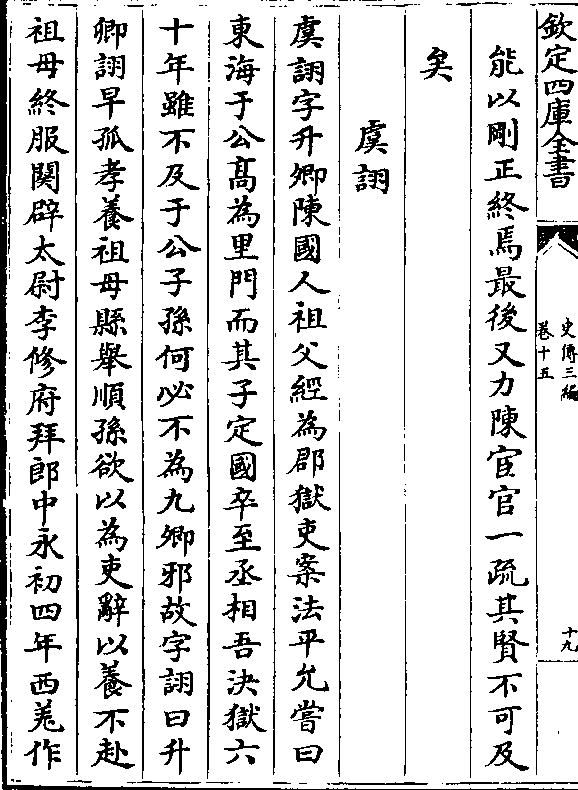 欽定四庫全書
史傳三編
卷十五
十九
能以剛正終焉最後又力陳宦官一疏其賢不可及
矣
虞詡
虞詡字升卿陳國人祖父經為郡獄吏案法平允嘗曰
東海于公髙為里門而其子定國卒至丞相吾決獄六
十年雖不及于公子孫何必不為九卿邪故字詡曰升
卿詡早孤孝養祖母縣舉順孫欲以為吏辭以養不赴
祖母終服闋辟太尉李修府拜郎中永初四年西羌作